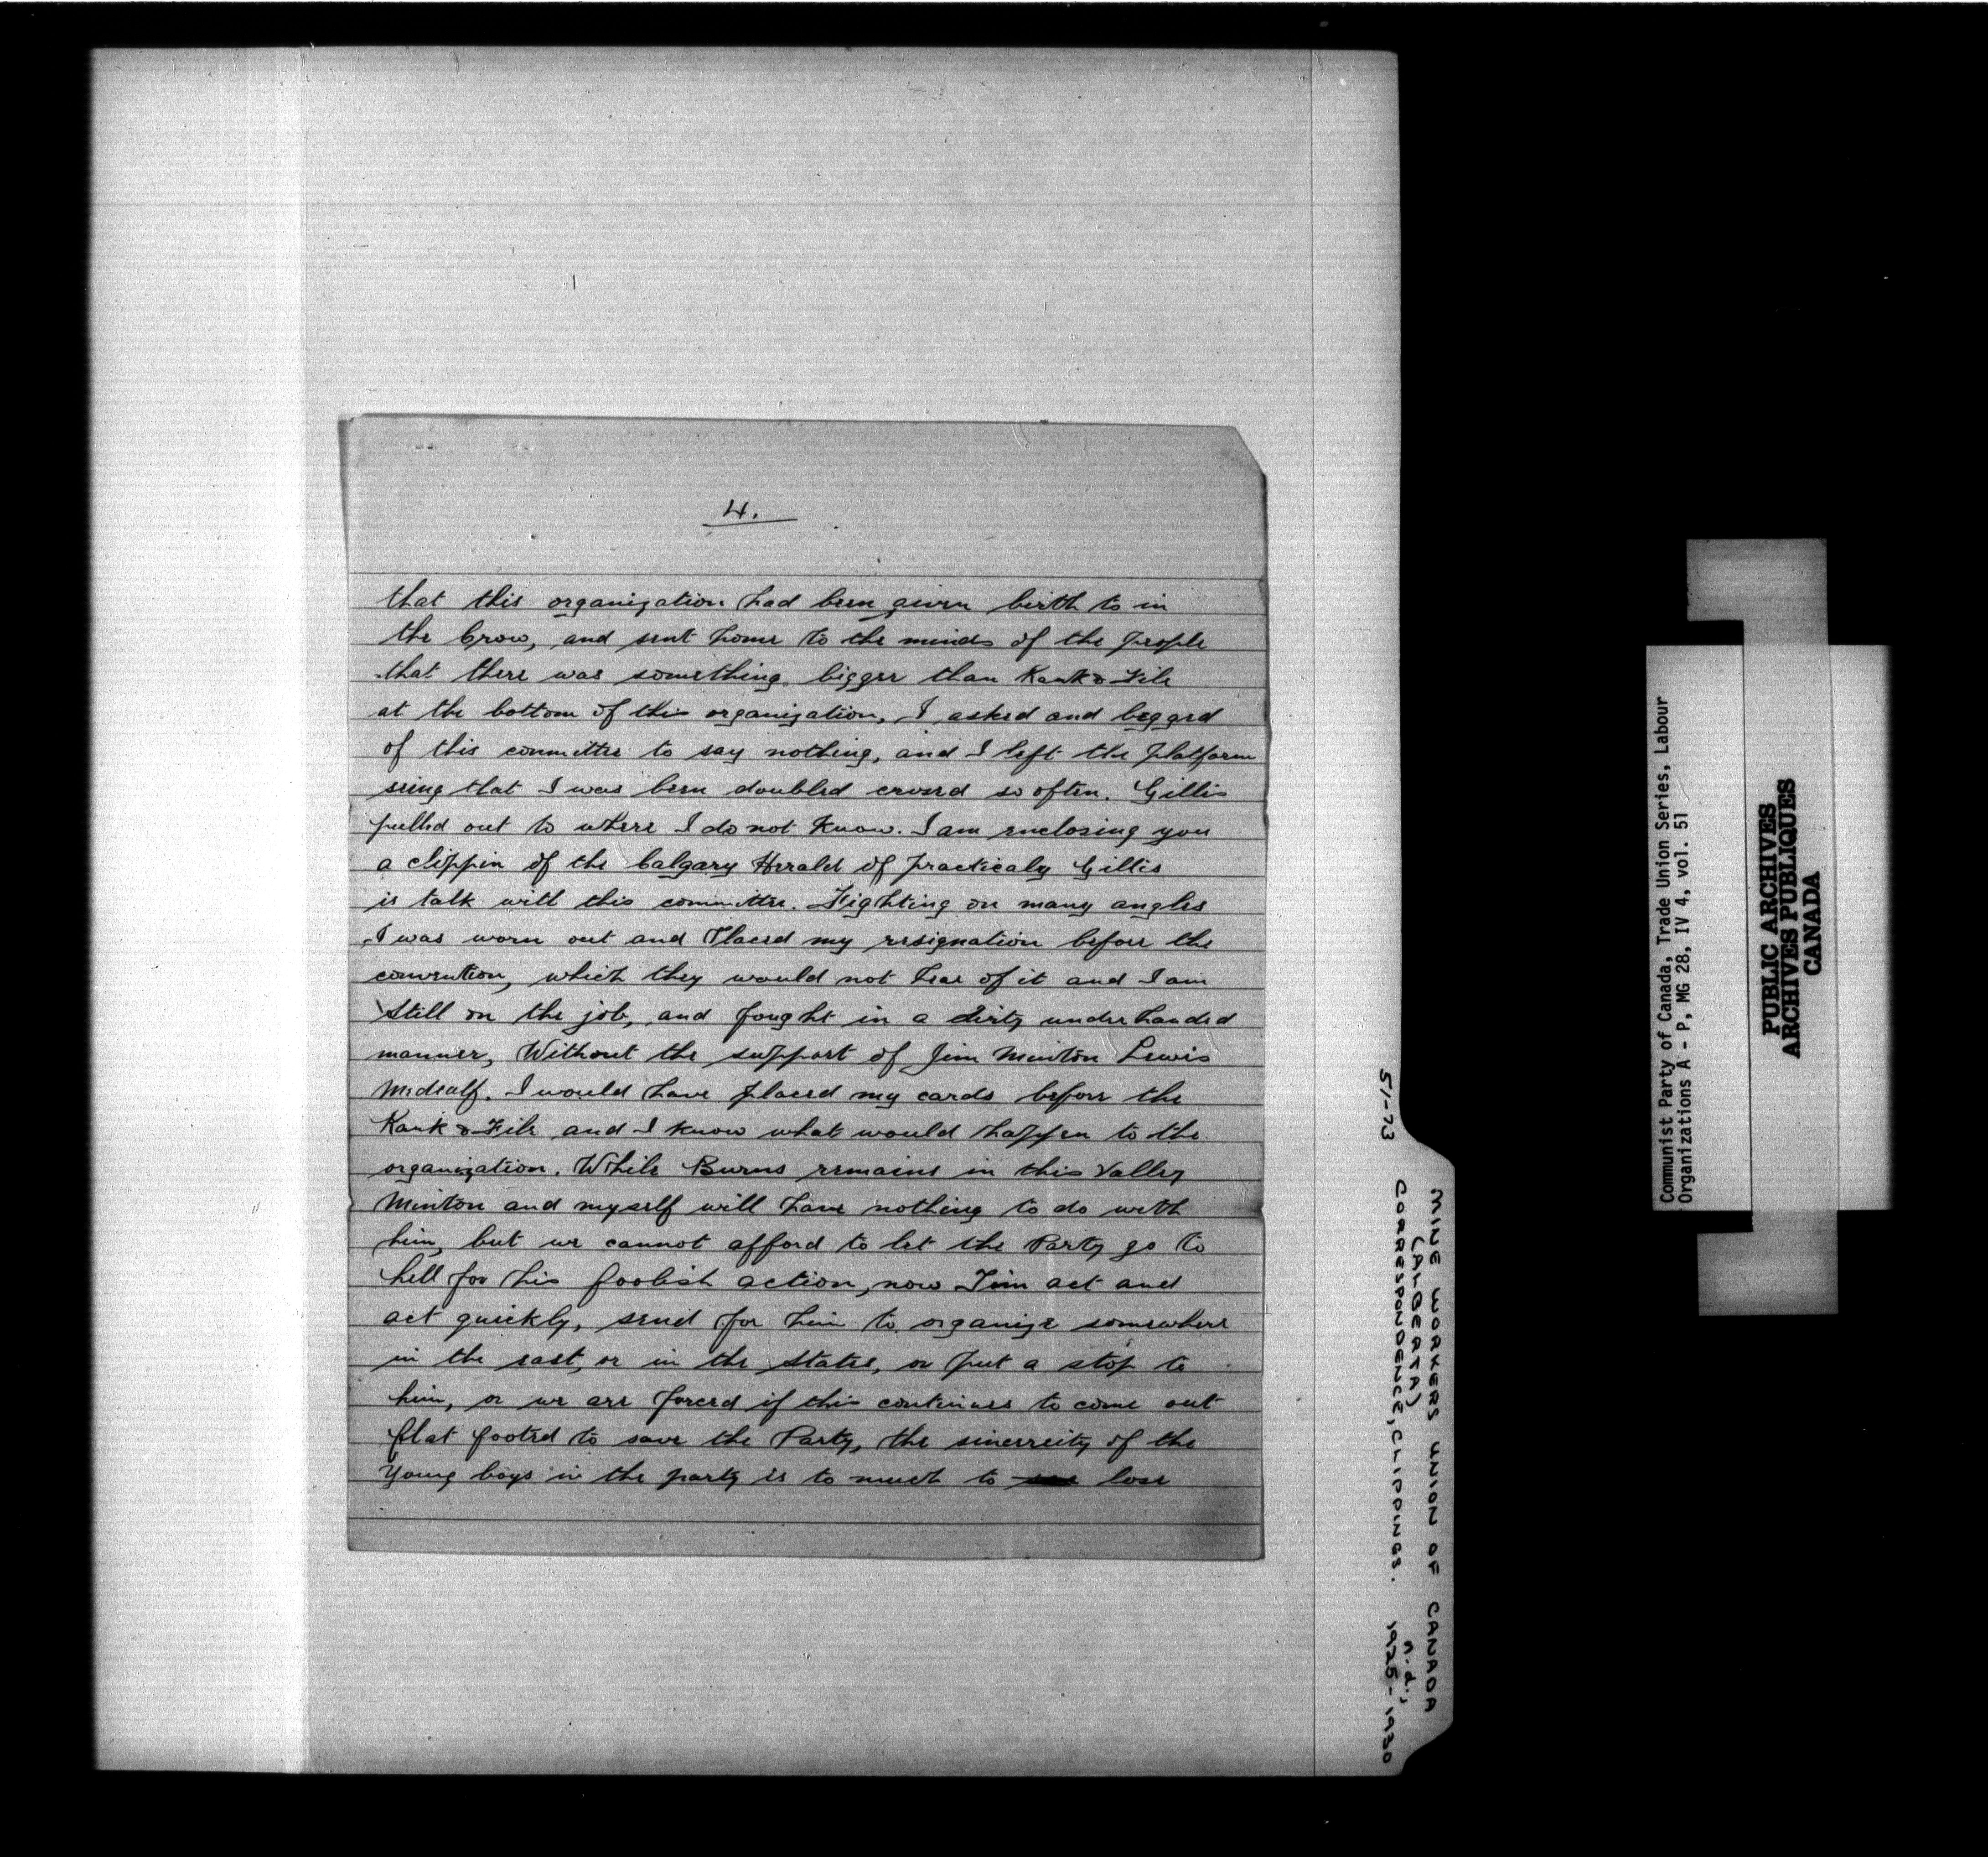 4.
that this organization had been given birth to in
the Crow, and sent home to the minds of the people
that there was something bigger than Rank & File
at the bottom of this organization, I asked and beggard
of this committee to say nothing, and I left the platform
seing that I was been doubled crossed so often. Gillis
pulled out to where I do not know. I am enclosing you
a clippin of the Calgary Herald of practicaly Gillis
is talk with this committee. Fighting on many angles
I was worn out and Placed my resignation before the
convention, which they would not hear of it and I am
still on the job, and fought in a dirty underhanded
manner, Without the support of Jim Minton Lewis
Mcdealf. I would have placed my cards before the
Rank & File and I know what would happen to the
organization. While Burns remains in this Valley
Minton and myself will have nothing to do with
him, but we cannot afford to let the Party go to
hell for his foolish action, now Tim act and
act quickly, send for him to organize somewhere
in the east, or in the States, or put a stop to
him, or we are forced if this continues to come out
flat footed to save the Party, the sincerreity of the
Young boys in the party is to much to lose
51-73
MINE WORKERS UNION OF CANADA
(ALBERTA)
CORRESPONDENCE, CLIPPINGS. n.d.,
1925-1930
Communist Party of Canada, Trade Union Series, Labour
Organizations A - P, MG 28, IV 4, vol. 51
PUBLIC ARCHIVES
ARCHIVES PUBLIQUES
CANADA